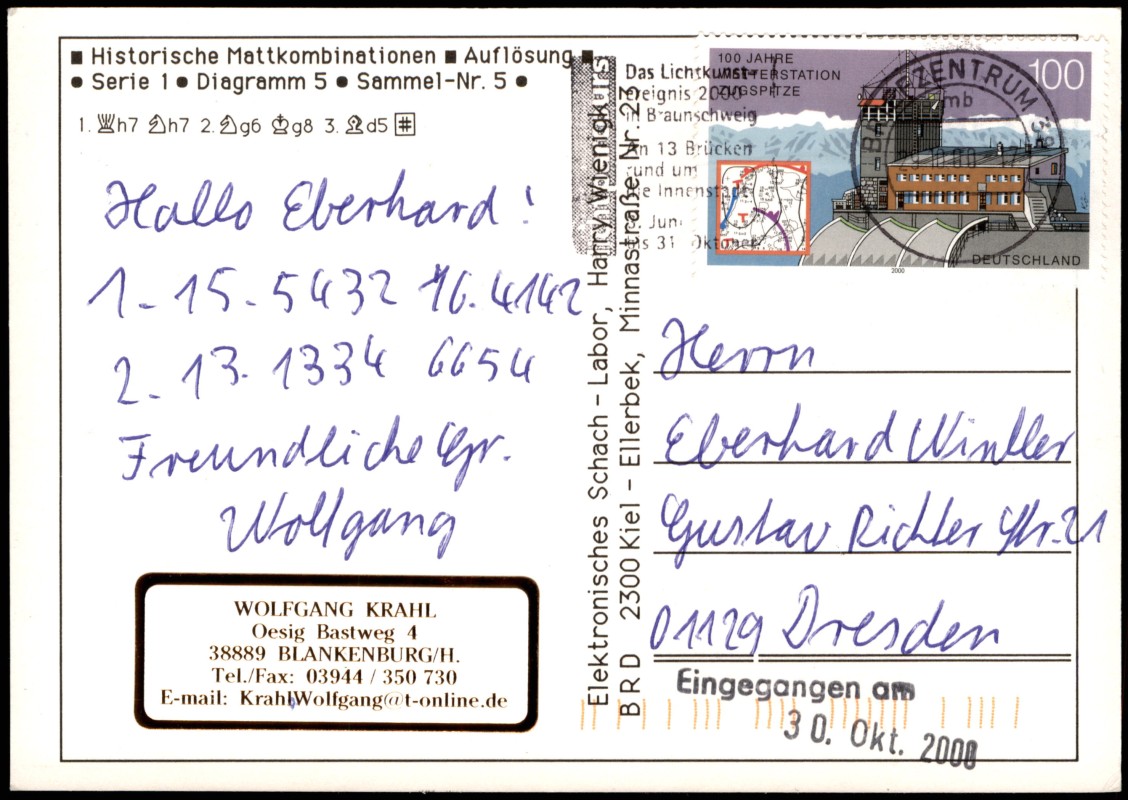 ■ Historische Mattkombinationen ■ Auflösung ■
● Serie 1 ● Diagramm 5 ● Sammel-Nr. 5 ●
1. ♕h7 ♘h7 2. ♘g6 ♔g8 3. ♗d5 #
Hallo Eberhard!
1- 15. 5432 16. 4142
2- 13. 1334 6654
Freundliche Gr.
Wolfgang
WOLFGANG KRAHL
Oesig Bastweg 4
38889 BLANKENBURG/H.
Tel./Fax: 03944 / 350 730
E-mail: KrahlWolfgang@t-online.de
Elektronisches Schach-Labor, Harry Wienigk
BRD 2300 Kiel - Ellerbek, Minnastraße Nr. 23
Das Lichtkunst-
ereignis 2000
in Braunschweig
an 13 Brücken
rund um
die Innenstadt
Juni
bis 31. Oktober
100 JAHRE
WETTERSTATION
ZUGSPITZE
100
DEUTSCHLAND
2000
BRIEFZENTRUM 38
mb
Herrn
Eberhard Winkler
Gustav Richter Str. 21
01129 Dresden
Eingegangen am
30. Okt. 2000